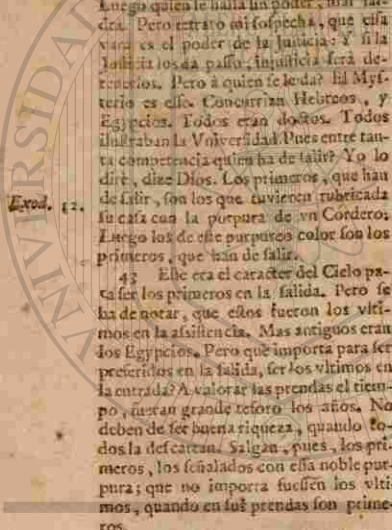 Luego quien le halla un poder, mal
dra. Pero retrato mi sospecha, que esta
vara es el poder de la Justicia: Y si la
Justicia los da passo, injusticia serà de-
tenerlos. Pero à quien se le da? El Mys-
terio es esse. Concurrian Hebreos, y
Egypcios. Todos eran doctos. Todos
ilustraban la Vniversidad. Pues entre tan-
ta competencia quien ha de salir? Yo lo
dirè, dize Dios. Los primeros, que han
Exod. 12. de salir, son los que tuvieren rubricada
su casa con la purpura de vn Cordero.
Luego los de este purpureo color son los
primeros, que han de salir.
43 Este era el caracter del Cielo pa-
ra ser los primeros en la salida. Pero se
ha de notar, que estos fueron los vlti-
mos en la assistencia. Mas antiguos eran
los Egypcios. Pero què importa para ser
preferidos en la salida, ser los vltimos en
la entrada? A valorar las prendas el tiem-
po, fueran grande tesoro los años. No
deben de ser buena riqueza, quando to-
dos la descartan. Salgan, pues, los pri-
meros, los señalados con essa noble pur-
pura; que no importa fuessen los vlti-
mos, quando en sus prendas son prime-
ros.
UNIVERSIDAD